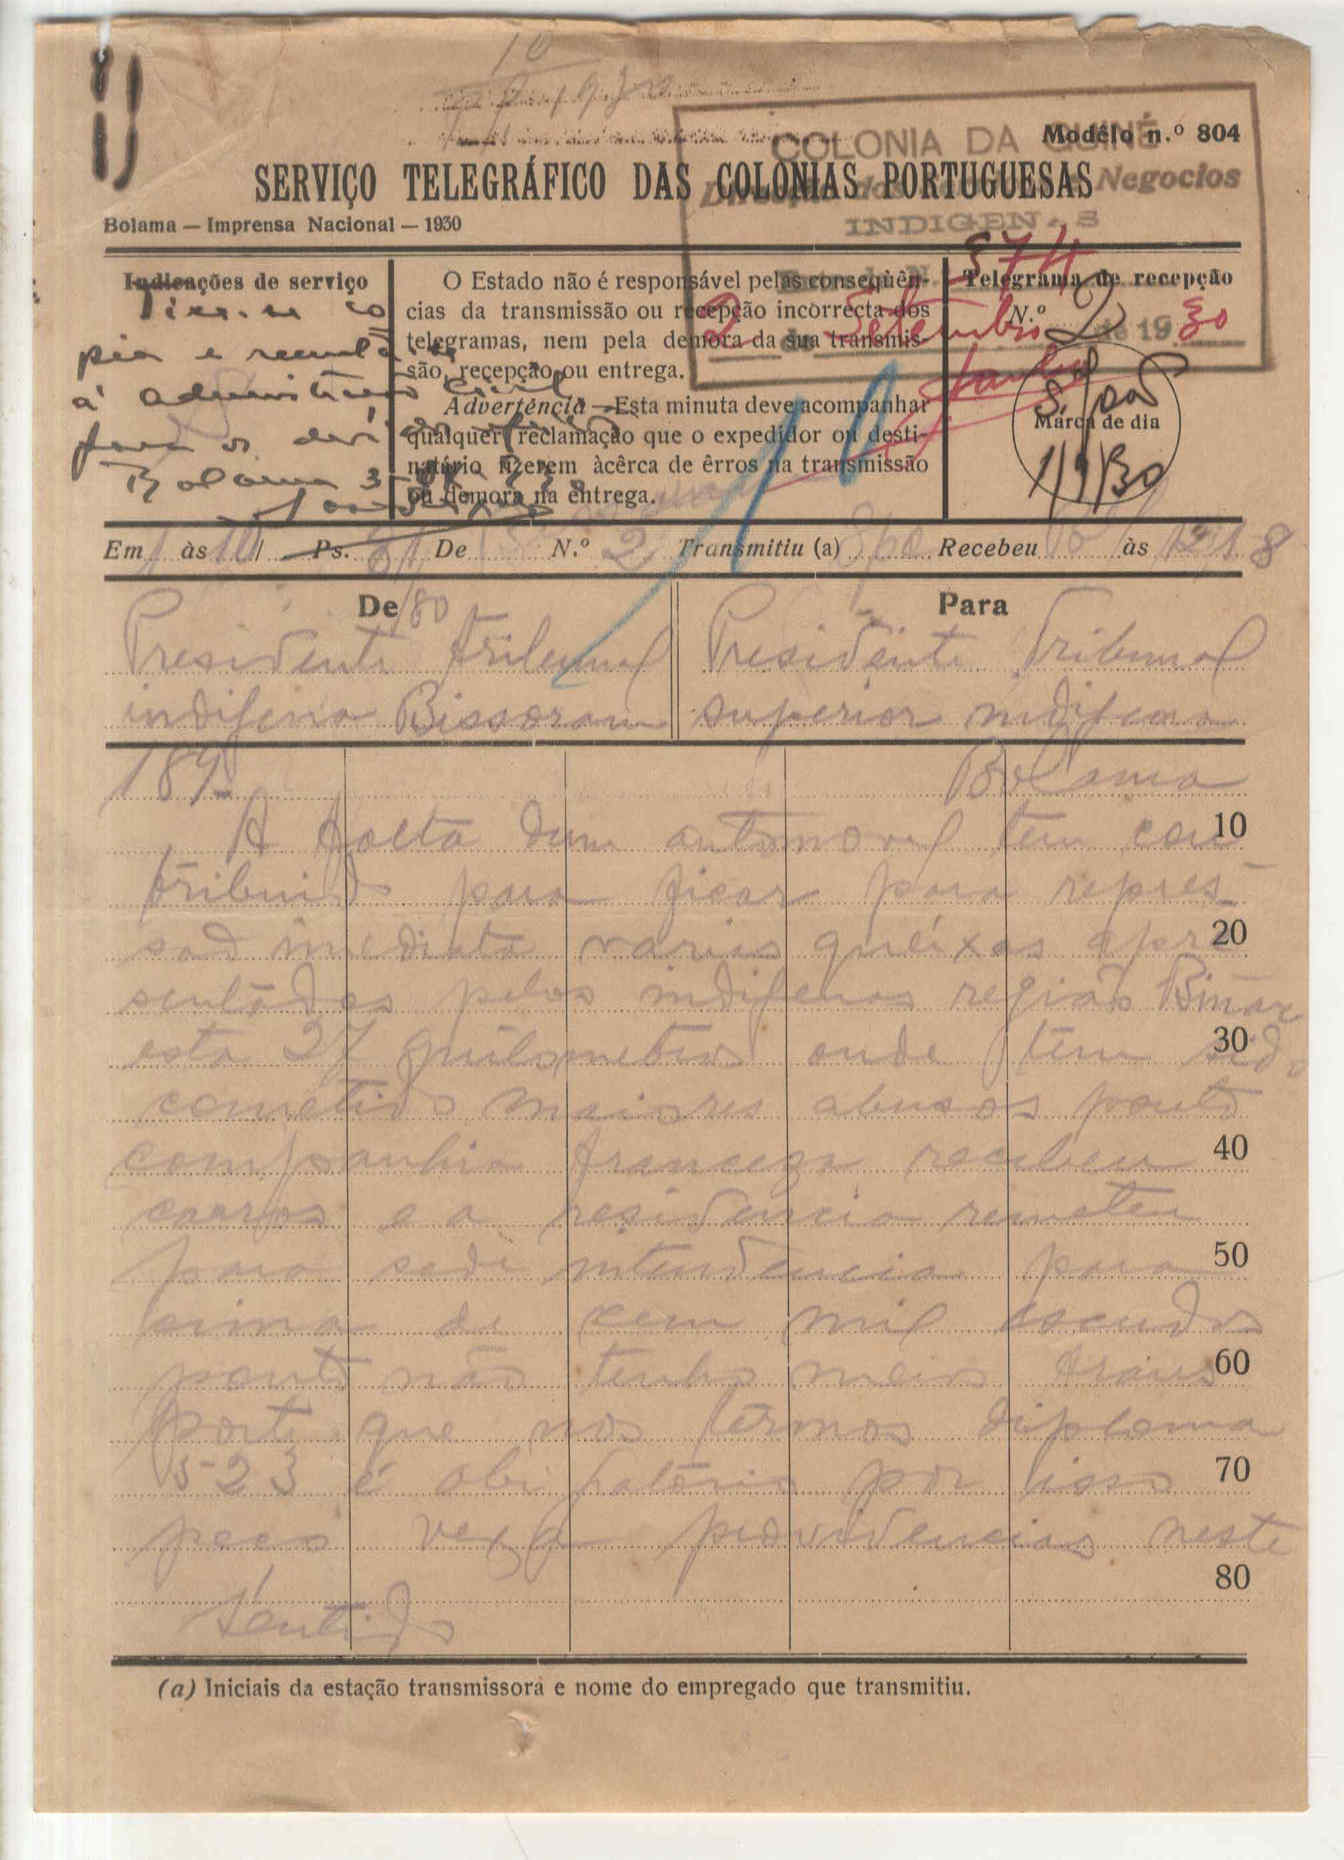 COLONIA DA GUINÉ
Negocios
INDIGENAS
574
2 de Setembro de 1930
Modêlo n.º 804
SERVIÇO TELEGRÁFICO DAS COLÓNIAS PORTUGUESAS
Bolama — Imprensa Nacional — 1930
Indicações de serviço
Tire-se co
pia e remeta-se
á administração Civil
para os devidos
Bolama 3
O Estado não é responsável pelas conseqüên-
cias da transmissão ou recepção incorrecta dos
telegramas, nem pela demora da sua transmis-
são, recepção ou entrega.
Advertência — Esta minuta deve acompanhar
qualquer reclamação que o expedidor ou desti-
natário fizerem àcêrca de êrros na transmissão
ou demora na entrega.
Telegrama de recepção
N.º 2
Marca de dia
1/9/30
Em 1 às 10 Ps. De N.º 2 Transmitiu (a) Recebeu às
De
Presidente tribunal
indigena Bissoram
Para
Presidente Tribunal
superior indigena
Bolama
189
A falta dum automovel tem con 10
tribuido para ficar para repres
são imediata varias queixas apre 20
sentadas pelos indigenas região Binar
esta 27 quilometros onde tem sido 30
cometido maiores abusos ponto
companhia franceza recebeu 40
carros e a residencia remeteu
para sede intendencia para 50
cima de cem mil escudos
ponto não tenho meios trans 60
porte que nos termos diploma
523 é obrigatório por isso 70
peço vexa providencias neste
80
sentido
(a) Iniciais da estação transmissora e nome do empregado que transmitiu.